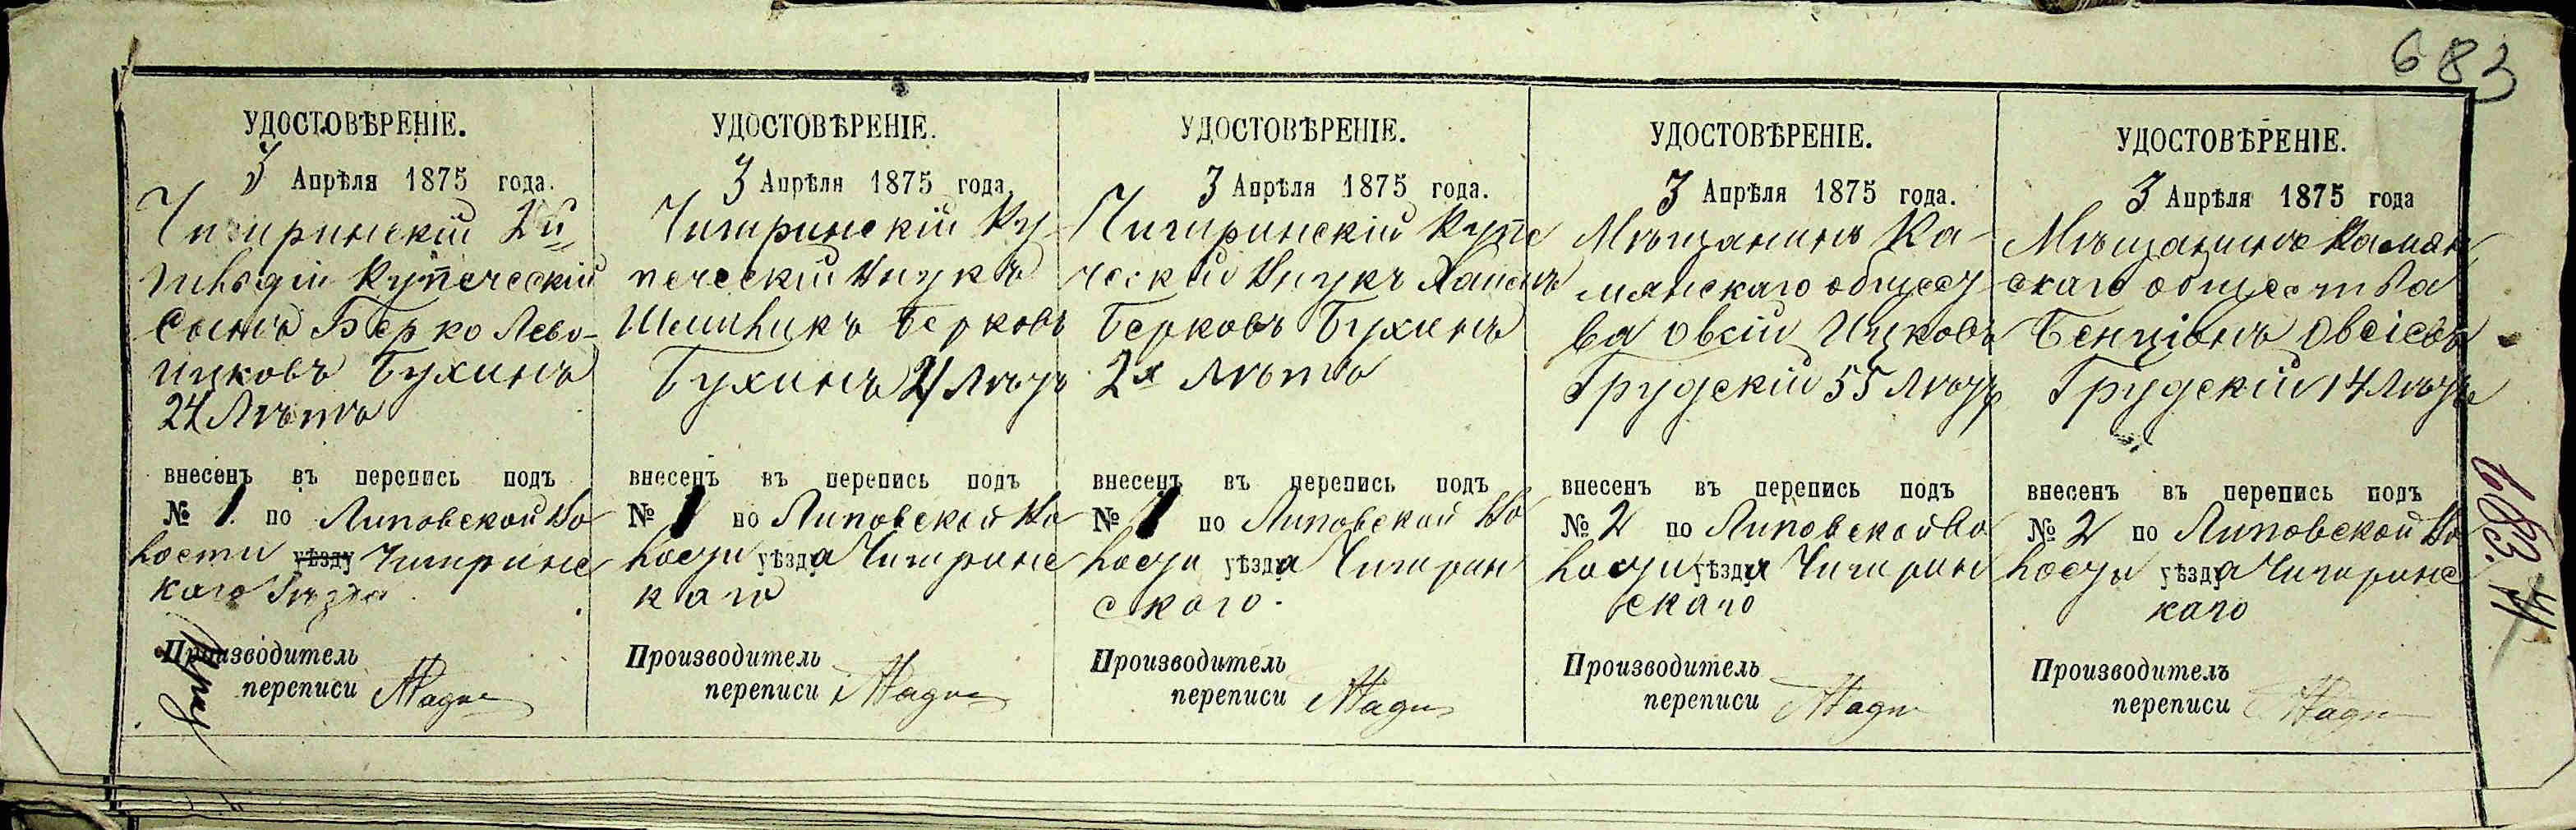 683
УДОСТОВѢРЕНІЕ.
3 Апрѣля 1875 года.
Чигиринскій 2й
гильдіи купеческій
сынъ Берко Лейбо-
ицковъ Бухинъ
24 лѣтъ
внесенъ въ перепись подъ
№ 1. по Липовской Во
лости уѣзду Чигиринс
каго уѣзда
Производитель
переписи
УДОСТОВѢРЕНІЕ.
3 Апрѣля 1875 года.
Чигиринскій Ку-
печескій внукъ
Берковъ
Бухинъ лѣтъ
внесенъ въ перепись подъ
№ 1 по Липовской Во
лости уѣзда Чигиринс
каго
Производитель
переписи
УДОСТОВѢРЕНІЕ.
3 Апрѣля 1875 года.
Чигиринскій Купе
ческій внукъ
Берковъ Бухинъ
2х лѣтъ
внесенъ въ перепись подъ
№ 1 по Липовской Во
лости уѣзда Чигирин
скаго.
Производитель
переписи
УДОСТОВѢРЕНІЕ.
3 Апрѣля 1875 года.
Мѣщанинъ Ка-
мянскаго общест
ва Овсій Ицковъ
Грудскій 55 лѣтъ
внесенъ въ перепись подъ
№ 2 по Липовской Во
лости уѣзда Чигирин
скаго
Производитель
переписи
УДОСТОВѢРЕНІЕ.
3 Апрѣля 1875 года
Мѣщанинъ Камян
скаго общества
Бенціонъ Овсіевъ
Грудскій 14 лѣтъ
внесенъ въ перепись подъ
№ 2 по Липовской Во
лости уѣзда Чигиринс
каго
Производитель
переписи
683.